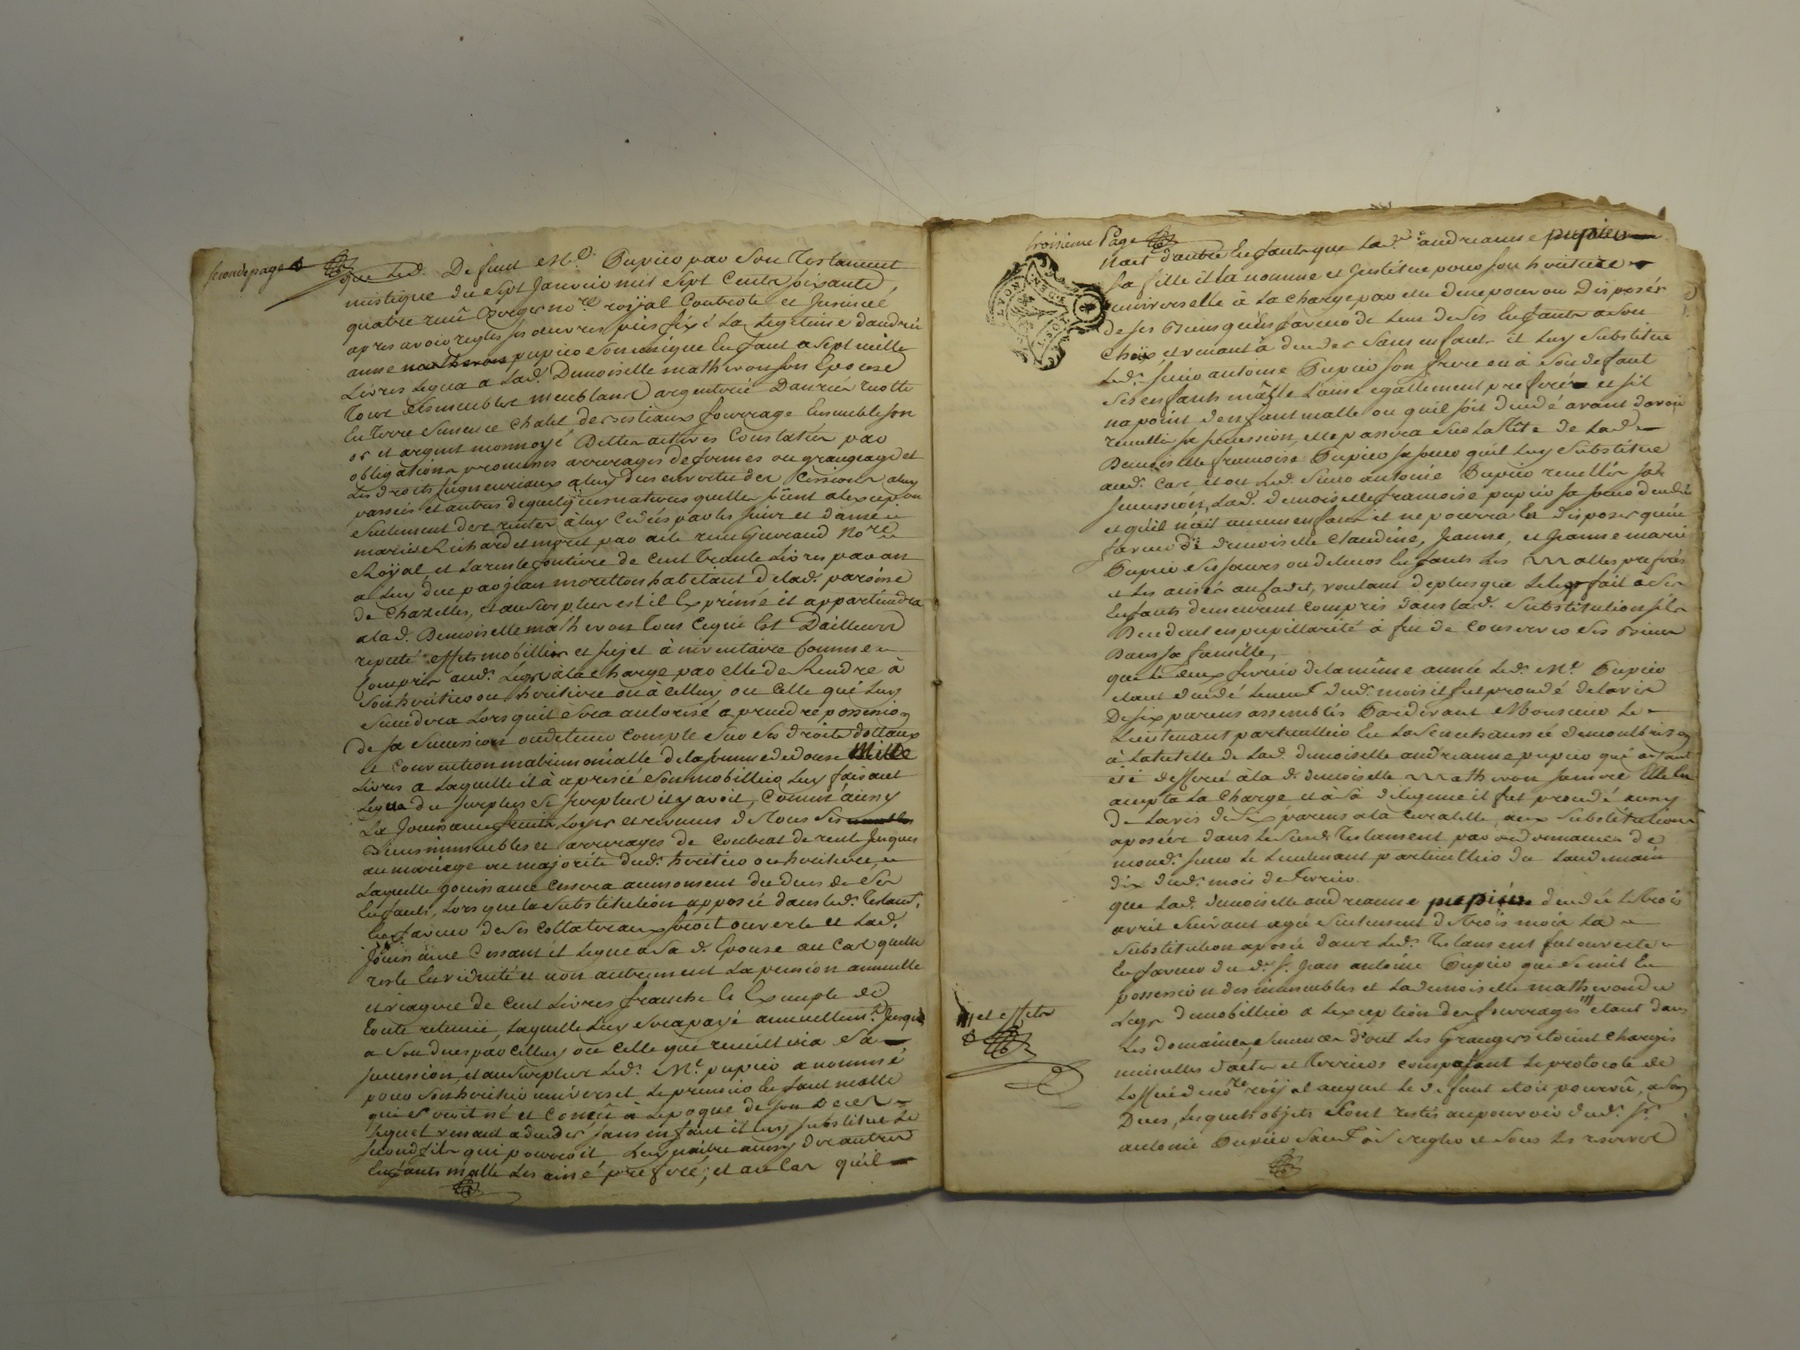 seconde page
que led. Defunt Me. Pupier par son Testament
mistique du sept Janvier mil sept Cents soixante
quatre reçu Verger nore. royal Controlé et Insinué
apres avoir reglés ses oeuvres pies fixé La Legitime dandrée
anne pupier son unique Enfant a sept mille
Livres Legua a Lad. Demoiselle mathevon son Epouse
Tout Ses meubles meublans argenterie Danrées
En Terre Semence Chalet de Bestiaux fourrage Ensemble son
or et argent monnoyé Dettes actives Constatées par
obligations promesses arrerages de fermes ou grangeage et
Les droits seigneuriaux a luy dus en vertu des Cessions a luy
passées et autres de quelques natures quelles soient a lexception
seulement des rentes à luy Cedées par les sieur et dame
marie Richard et par acte reçu Guerand Nore
Royal et La rente fonciere de Cent Trente Livres par an
a Luy due par jean moretton habitant de lad. paroisse
de Chazelles, et au surplus est il Exprimé il appartiendra
a lad. Demoiselle mathevon tous ce qui Est Dailleurs
reputé effets mobilliers et sujet à inventaire Comme
Compris aud. Legs à la charge par elle de Rendre à
son heritier ou heritiere ou à celluy ou Celle qui Luy
succedera Lors quil sera autorisé a prendre possession
de sa succession ou de tenir compte sur ses droits dottaux
et convention matrimonialle de la somme de douze Mille
Livres a Laquelle il à apretié son mobillier Luy faisant
Legua du surplus si surplus il y avoit, comm'aussy
La Jouissance Loyers et revenus de Tous ses
Biens immeubles et arrerages de Contrat de rente Jusques
au mariage ou majorité dud. heritier ou heritiere
Laquelle jouissance cessera au moment du deces de ses
Enfants, Lors que la substitution apposée dans led. Testamt.
En faveur de ses Collateraux seroit ouverte et Lad.
Jouissance Cessant il Legue a sa d. Epouse au Cas quelle
reste En viduité et non autrement La pension annuelle
et viagere de Cent Livres franche et Exempte de
toute retenue, Laquelle Luy sera payé annuellemt. Jusqua
a son deces par Celluy ou Celle qui recueillira sa
succession, et au surplus Led. Me. pupier a nommé
pour son heritier universel Le premier Enfant malle
qui seroit né et Concû à Lepoque de son Decés
Lequel venant a deceder sans enfant il luy substitue Le
second fils qui pourroit Luy naitre ainsy des autres
Enfants malle Les ainé preferé; et au Cas qu'il
troisieme Page
Nait d'autre Enfants que Lad. andreanne pupier
sa fille il la nomme et Institue pour son heritiere
universelle à La charge par elle de ne pouvoir Disposer
de ses Biens qu'En faveur de Lun de ses Enfants a son
Choix et venant à deceder sans enfants il Luy Substitue
Led. sieur antoine Pupier son frere ou à son defaut
ses enfants mâlle Lainé egallement preferé et sil
na point denfant malle ou quil soit decedé avant davoir
recueilli sa succession, elle passera sur La tête de Lad.
Demoiselle francoise Pupier sa soeur quil Luy Substitue
aud. Cas et ou Led. sieur antoine Pupier recueillir sad.
succession, Lad. demoiselle francoise pupier sa soeur decedé
et quil nait aucuns enfants il ne pourra En disposer quen
faveur de demoiselle Claudine, Jeanne, et Jeanne marie
Pupier ses soeurs ou de leurs Enfants Les Malles preferés
et Les ainés au cadet, voulant deplus que Le legs fait a ses
Enfants demeurent compris dans lad. Substitution sils
Decedait en pupillarité à fin de Conserver ses Biens
Dans sa famille,
que Le deux fevrier de la même année Led. Me. Pupier
etant decedé Le neuf dud. mois il fut procedé de lavis
De six parens assemblés Pardevant Monsieur Le
Lieutenant particullier En La Senechaussée de montbrison
à La tutelle de Lad. demoiselle andreanne pupier qui
eté defferée à la d. demoiselle Mathevon sa mere Elle En
accepta La Charge et à sa diligence il fut procedé aussy
De Lavis de Six parens a la Curatelle aux Substitutions
aposées dans le susd. Testament par ordonnance de
mond. sieur Le Lieutenant particullier du Landemain
dix dud. mois de fevrier.
que Lad. demoiselle andreanne pupier decedée Le trois
avril suivant agée seulement de trois mois La
substitution aposée dans Led. Testament fut ouverte
En faveur du d. sr. Jean antoine Pupier qui se mit En
possession des immeubles et La demoiselle mathevon du
Legs du mobillier a Lexception des fourrages /// etant dans
Les domaines, semences dont Les Grangers étoient chargés
minuttes dactes et Terriers composant Le protocole de
Loffice de nore royal auquel Le defunt etoit pourvu, a son
Deces, Lesquels objets sont restés au pouvoir dud. sr.
antoine Pupier sauf à se regler et sous Les reserves
/// et effets